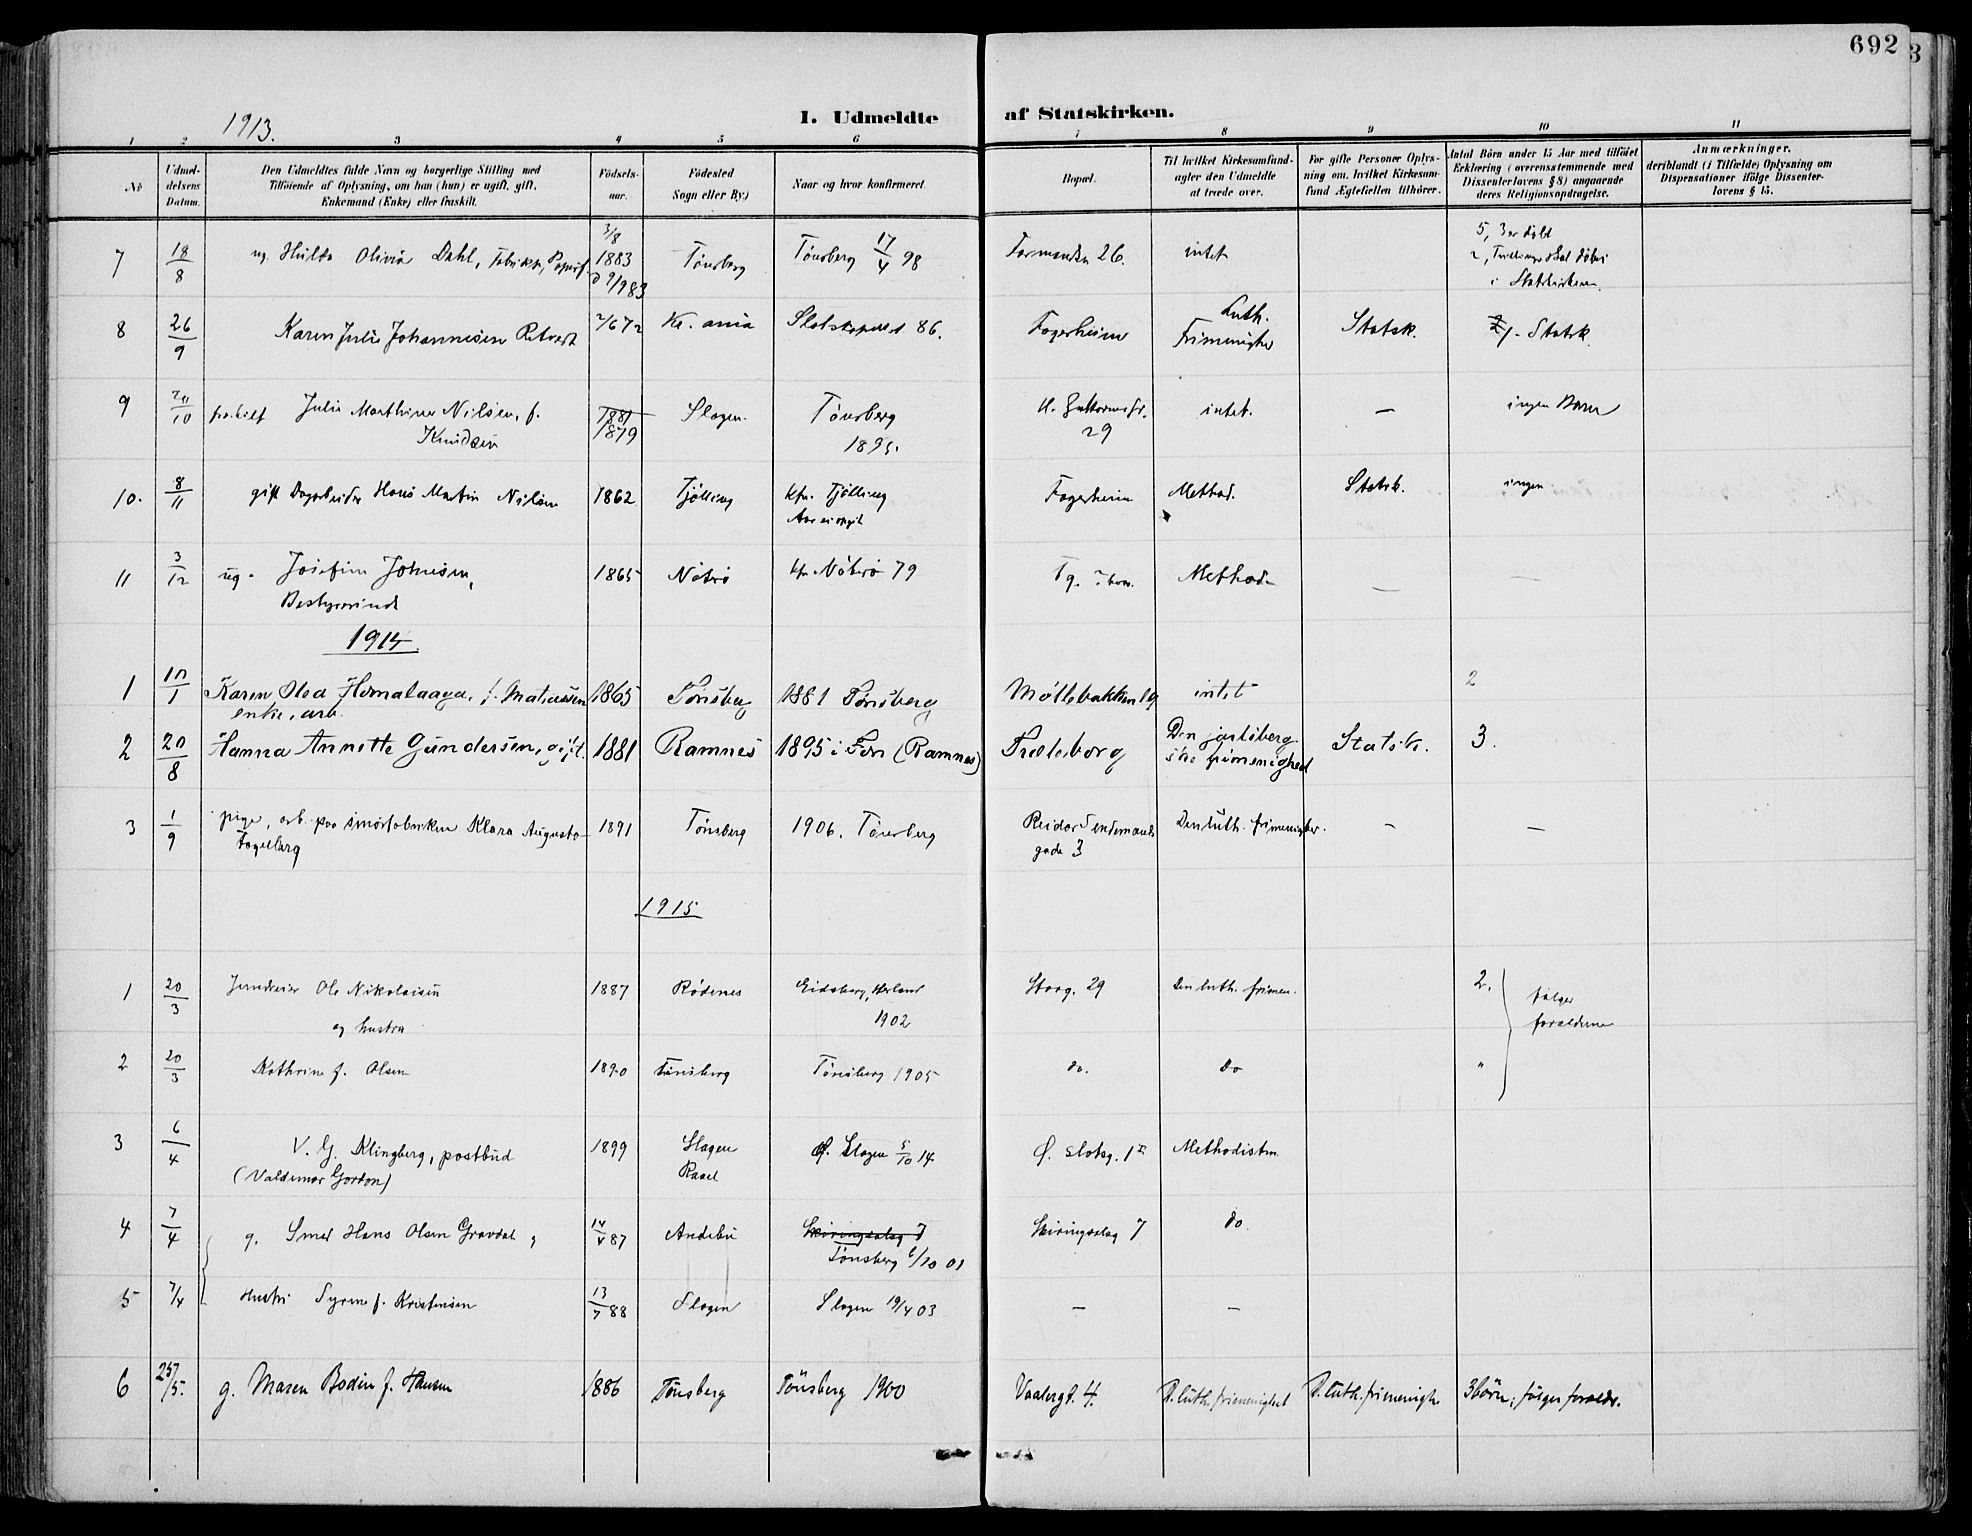 692
1913.
I. Udmeldte af Statskirken.
1 2 3 4 5 6 7 8 9 10 11
No
Udmel-
delsens
Datum.
Den Udmeldtes fulde Navn og borgerlige Stilling med
Tilföiende af Oplysning, om han (hun) er ugift, gift,
Enkemand (Enke) eller fraskilt.
Födsels-
aar.
Födested
Sogn eller By.)
Naar og hvor konfirmeret.
Bopæl.
Til hvilket Kirkesamfund-
agter den Udmeldte
at træde over.
For gifte Personer Oplys-
ning om, hvilket Kirkesam-
fund Ægtefællen tilhörer.
Antal Börn under 15 Aar med tilföiet
Erklæring (overensstemmende med
Dissenterlovens § 8) angaaende
deres Religionsopdragelse.
Anmærkninger,
deriblandt (i Tilfælde) Oplysning om
Dispensationer ifölge Dissenter-
lovens § 15.
7 18/8 ug. Hulda Olivia Dahl, 3/8 1883 Tönsberg Tönsberg 17/4 98 26. intet 5, 3 er døbt
2, Tvillinger skal döbes
i Statskirken.
8 26/9 Karen Julie Johannesen 2/6 72 Kr. ania 86. Fagerheim Luth.
Frimenigher Statsk. 1 - Statsk.
9 20/10 fraskilt Julie Marthine Nilsen, f.
Knudsen 1881
1879 Slagen. Tönsberg
1895. 29 intet. — ingen Barn
10. 8/11 gift Dagarbeider Hans Martin Nilsen 1862 Tjölling kfr. Tjölling
Aar ei opgit Fagerheim Method. Statsk. ingen
11 3/12 ug. Josefine Johnsen,
Bestyrerinde 1865 Nöterö kfr. Nöterö 79 Method. — —
1914
1 10/1 Karen Olea Hemalaaga, f. Matiassen
enke, arb. 1865 Tönsberg 1881 Tönsberg Møllebakken 19 intet 2
2 20/8 Hanna Annette Gundersen, gift. 1881 Ramnes 1895 i Fon (Ramnes) Træleborg Den jarlsberg-
ske frimenighed Statsk. 3.
3 1/9 pige, arb. paa smörfabriken Klara Augusta
Fagelberg 1891 Tönsberg 1906. Tönsberg Reidar Sendemands
gade 3 Den luth. frimenigher. — —
1915
1 20/3 Ole Nikolaisen
og hustru 1887 Rödenes Eidsberg, Herland
1902 Storg. 29 Den luth. frimen. 2. følger
forældrene
2 20/3 Kathrine f. Olsen 1890 Tönsberg Tönsberg 1905 do. do "
3 6/4 V. G. Klingberg, postbud
(Valdemar Gordon) 1899 Slagen
Rael Slagen 5/10 14 Ø. slotsg. Methodisten
4 7/4 g. Smed Hans Olsen Gravdal, 14/4 87 Andebu Skiringssalsg 7
Tönsberg 6/10 01 Skiringssalsg 7 do.
5 7/4 Hustru Syrene f. Kristensen 13/7 88 Slagen Slagen 19/4 03 — —
6 25/5. g. Maren Bodin f. Hansen 1886 Tönsberg Tönsberg 1900 Vaalergt. 4. D. luth. frimenighet D. luth. frimenigh. 3 børn; følger foreldr.